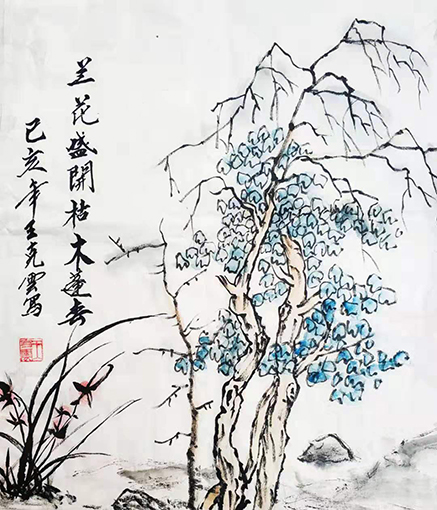 兰花盛開枯木逢春
己亥年王克雲写